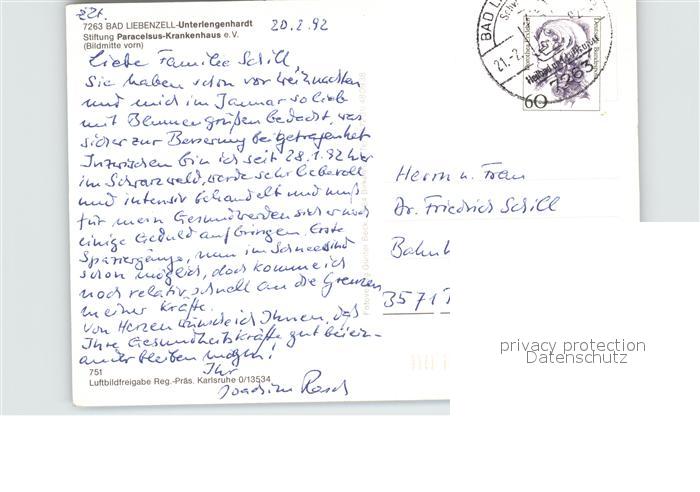 zZt.
7263 BAD LIEBENZELL-Unterlengenhardt
Stiftung Paracelsus-Krankenhaus e.V.
(Bildmitte vorn)
20.2.92
Liebe Familie Schill,
Sie haben schon vor Weihnachten
und mich im Januar so lieb
mit Blumengrüßen bedacht, was
sicher zur Besserung beigetragen hat.
Inzwischen bin ich seit 28.1.92 hier
im Schwarzwald, werde sehr liebevoll
und intensiv behandelt und muß
für mein Gesundwerden sicher noch
einige Geduld aufbringen. Erste
Spaziergänge, nun im Schnee sind
schon möglich, doch komme ich
noch relativ schnell an die Grenzen
meiner Kräfte.
Von Herzen wünsche ich Ihnen, daß
Ihre Gesundheitskräfte gut beiein-
ander bleiben mögen!
Ihr
Joachim Rosch
751
Luftbildfreigabe Reg.-Präs. Karlsruhe 0/13534
BAD L
21.-2.
7263
60
Herrn u. Frau
Dr. Friedrich Schill
Bahnh
3571
privacy protection
Datenschutz